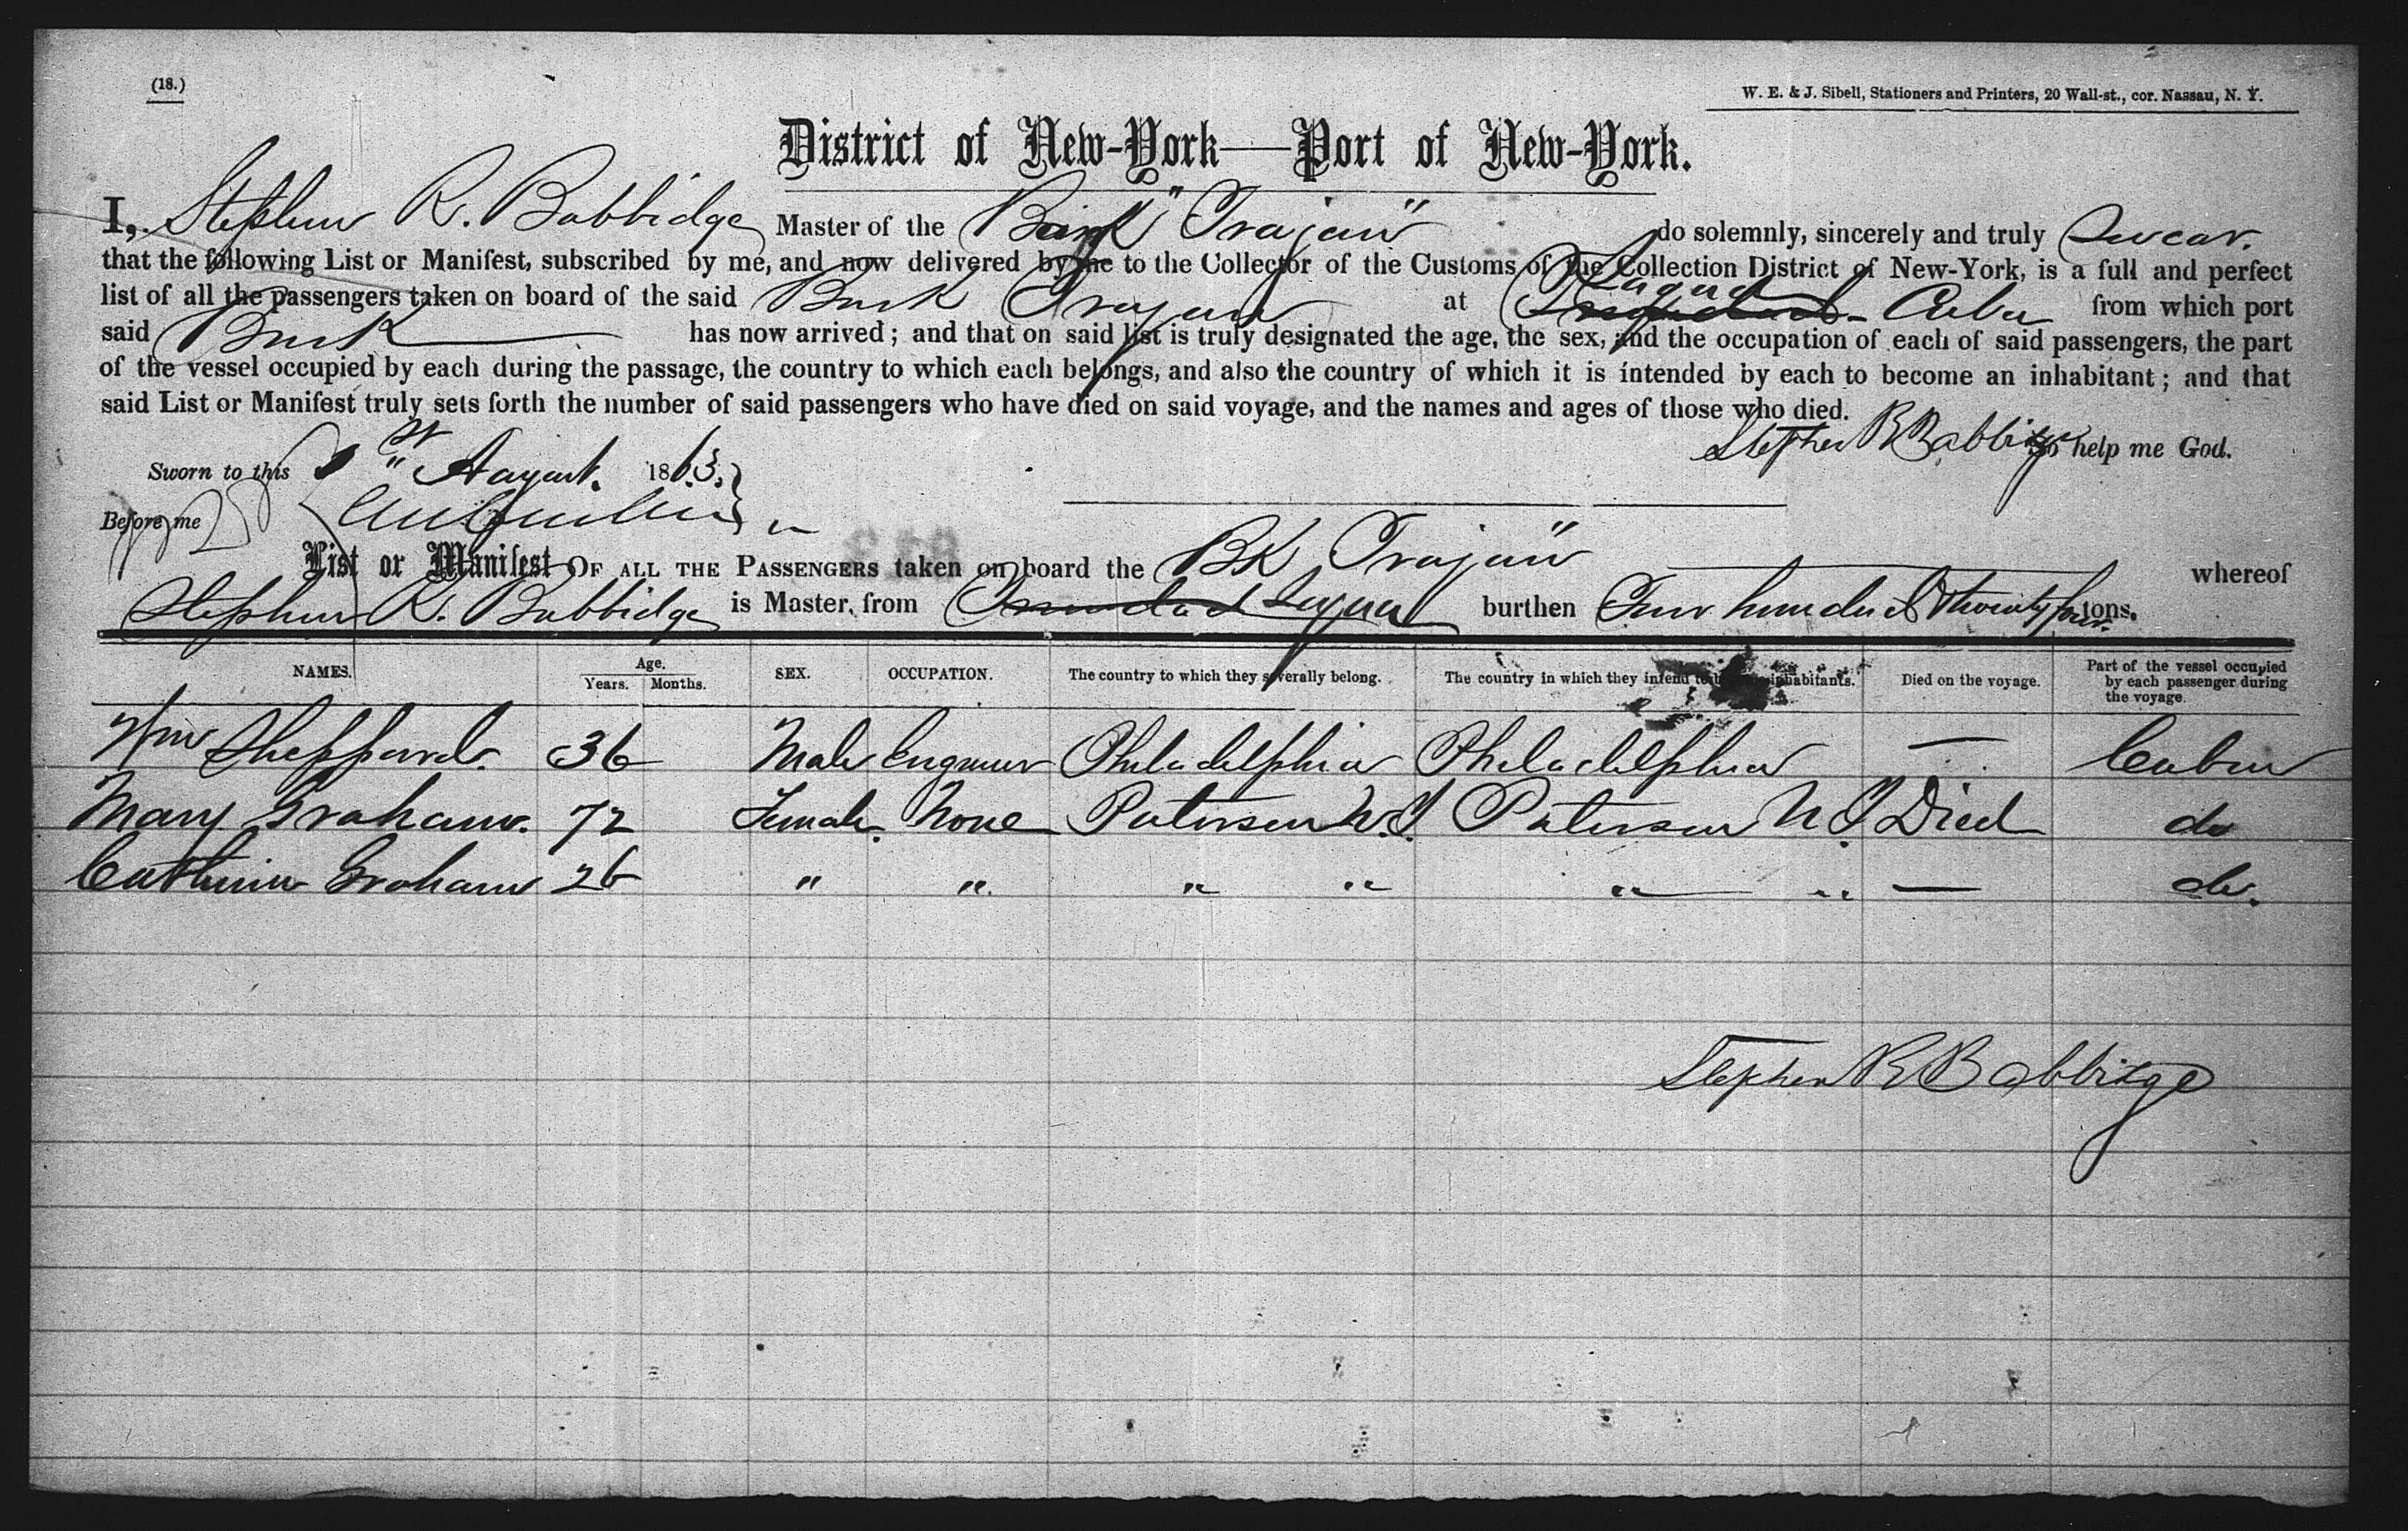 (18.)
W. E. & J. Sibell, Stationers and Printers, 20 Wall-st., cor. Nassau, N. Y.
District of New-York—Port of New-York.
I, Stephen R. Babbidge Master of the Bark "Trajan" do solemnly, sincerely and truly Swear.
that the following List or Manifest, subscribed by me, and now delivered by me to the Collector of the Customs of the Collection District of New-York, is a full and perfect
list of all the passengers taken on board of the said Bark Trajan at Trinidad Sagua Cuba from which port
said Bark has now arrived; and that on said list is truly designated the age, the sex, and the occupation of each of said passengers, the part
of the vessel occupied by each during the passage, the country to which each belongs, and also the country of which it is intended by each to become an inhabitant; and that
said List or Manifest truly sets forth the number of said passengers who have died on said voyage, and the names and ages of those who died.
Stephen R Babbidge So help me God.
Sworn to this 1st August. 1863.
Before me
List or Manifest OF ALL THE PASSENGERS taken on board the BK Trajan" whereof
Stephen R. Babbidge is Master, from Trinidad Sagua burthen Four hundred & twenty four tons.
NAMES. Age. Years. Months. SEX. OCCUPATION. The country to which they severally belong. The country in which they intend to inhabitants. Died on the voyage. Part of the vessel occupied by each passenger during the voyage.
Wm Sheppard. 36 Male Engineer Philadelphia Philadelphia — Cabin
Mary Graham. 72 Female. None Paterson N.J. Paterson N.J Died do
Catherine Graham 26 " " " " " " — do.
Stephen R Babbidge